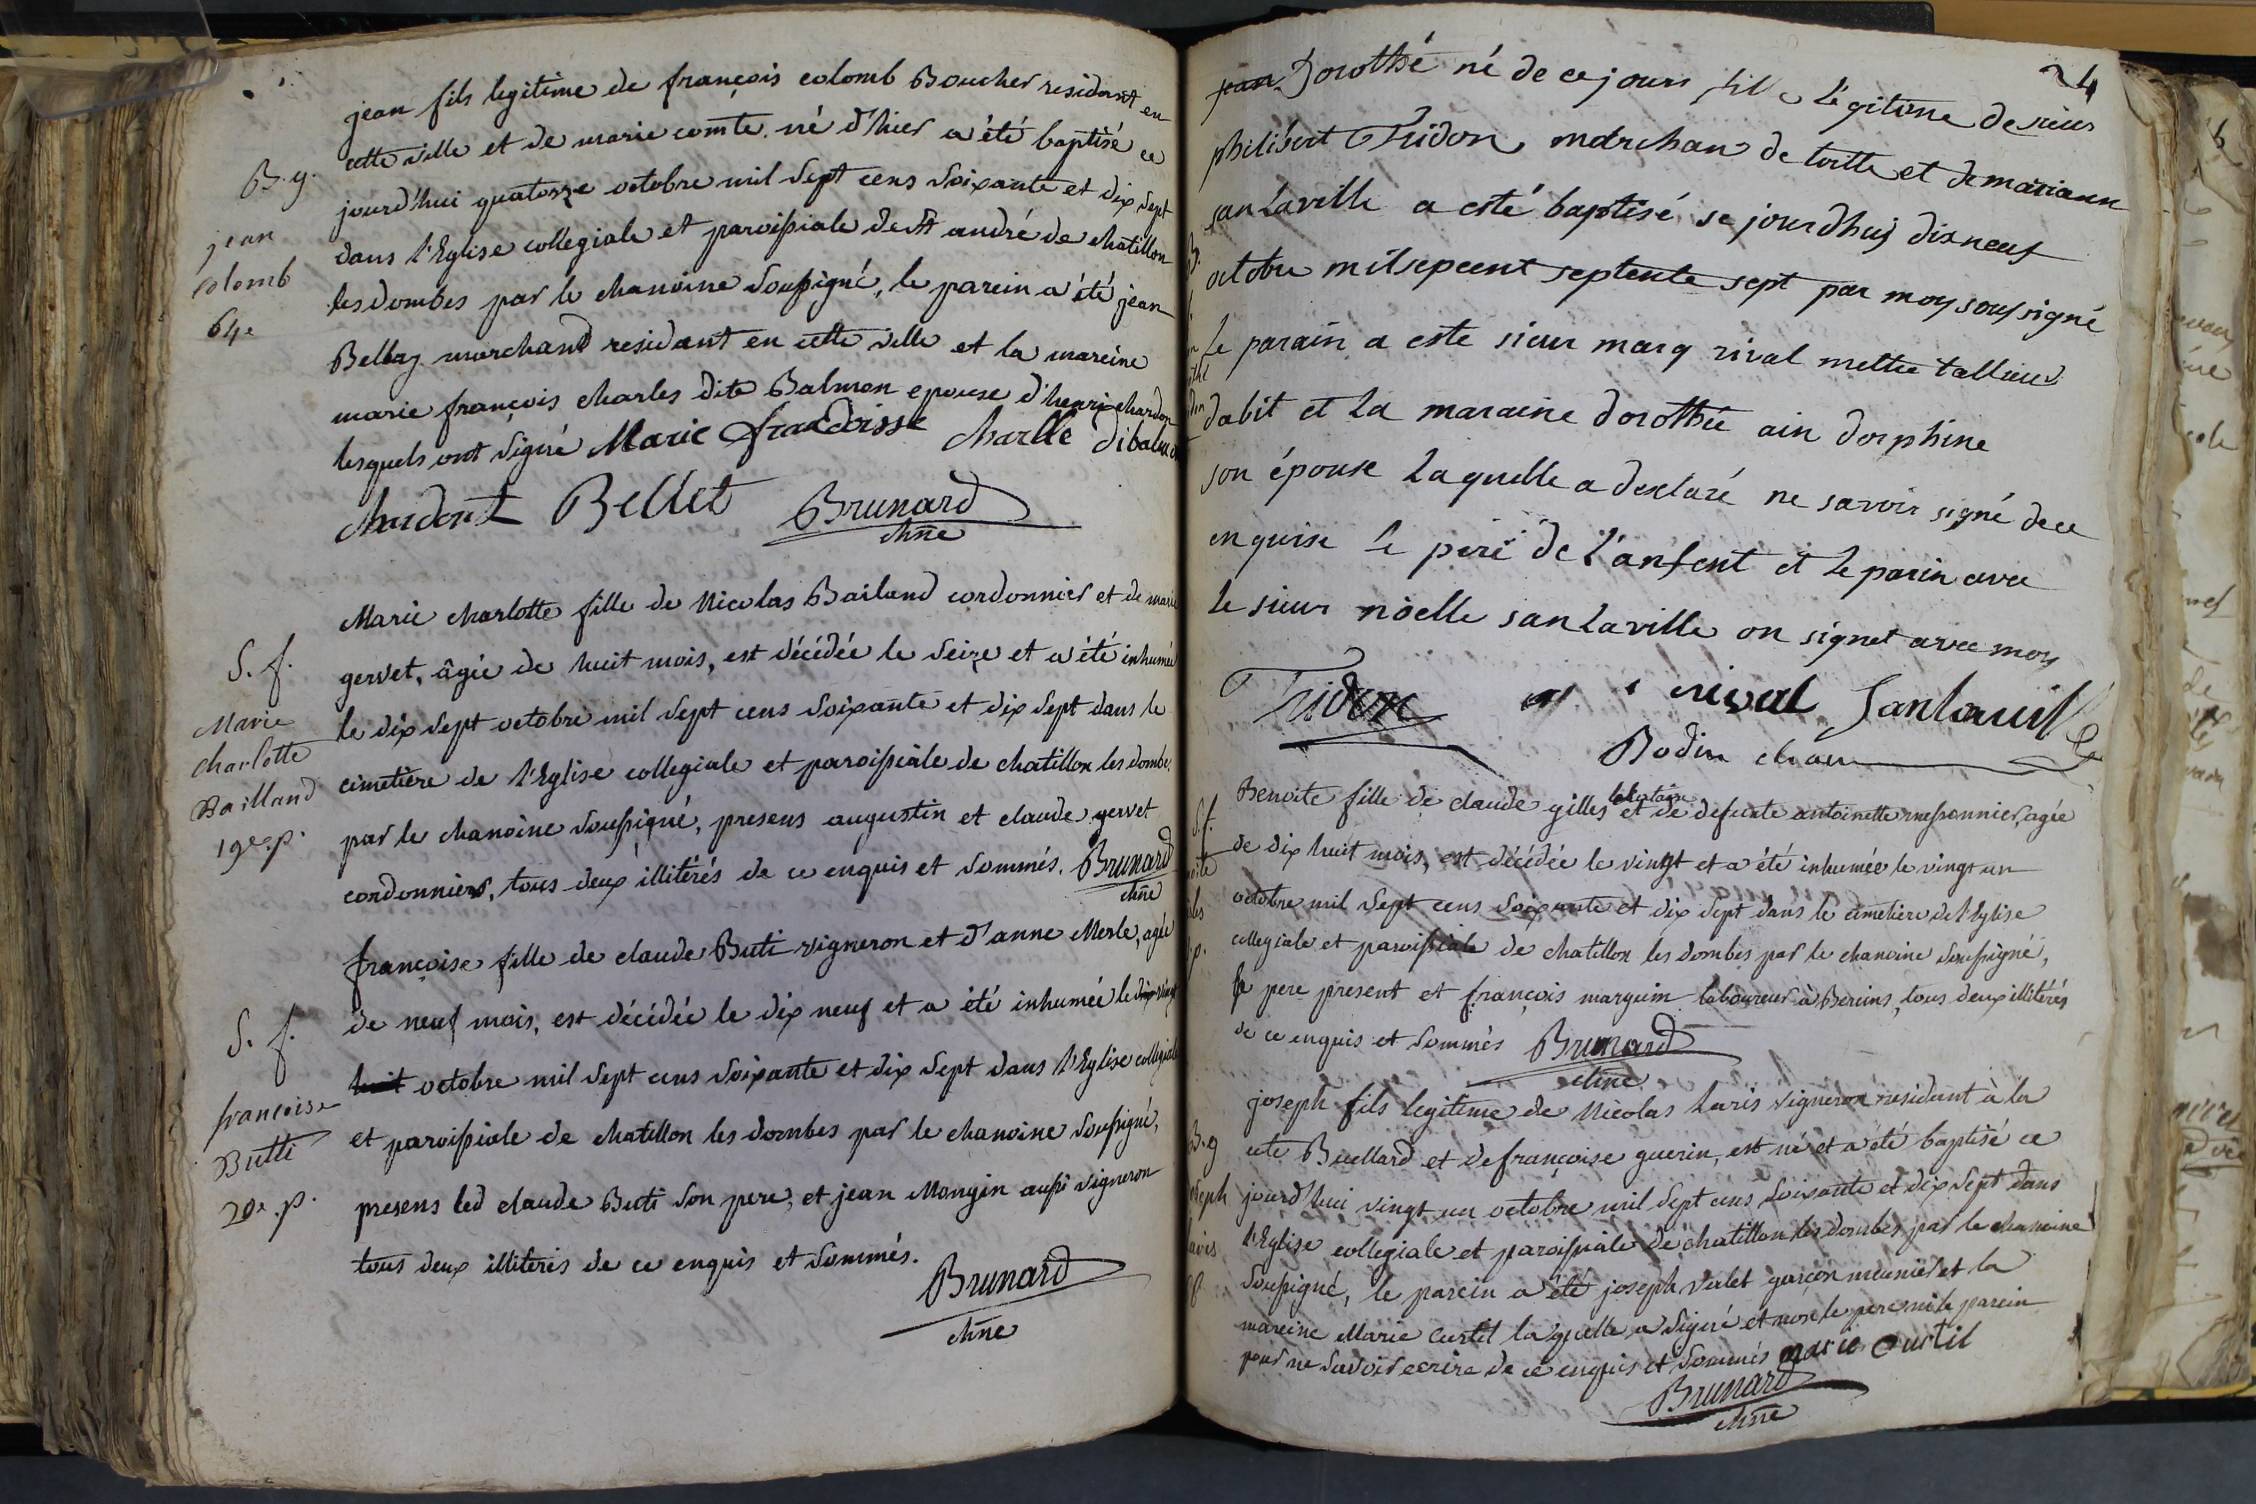 jean fils legitime de françois colomb Boucher residant en
B. g. cette ville et de marie comte. né d'hier a été baptisé ce
jourd'hui quatorze octobre mil sept cens soixante et dix sept
jean
colomb
64e
dans l'Eglise collegiale et paroissiale de st andré de chatillon
les dombes par le chanoine soussigné, le parein a été jean
Bellay marchand resident en cette ville et la mareine
marie françois charles dite Balmon epouse d'henri chardon
lesquels ont signé Marie francoisse charlle dibalmon
chardont Bellet Brunard
chne
Marie charlotte fille de Nicolas Bailand cordonnier et de marie
S. f.
Marie
charlotte
Bailland
19e. p.
gervet, âgée de huit mois, est décédée le seize et a été inhumée
le dix sept octobre mil sept cens soixante et dix sept dans le
cimetière de l'Eglise collegiale et paroissiale de chatillon les dombes
par le chanoine soussigné, presens augustin et claude gervet
cordonniers, tous deux illitérés de ce enquis et sommés. Brunard
chne
françoise fille de claude Buti vigneron et d'anne Merle, agée
S. f.
francoise
Butti
20e. p.
de neuf mois, est décédée le dix neuf et a été inhumée le dix vingt
huit octobre mil sept cens soixante et dix sept dans l'Eglise collegiale
et paroissiale de chatillon les dombes par le chanoine soussigné,
presens led claude Buti son pere, et jean Mongin aussi vigneron
tous deux illiterés de ce enquis et sommés.
Brunard
chne
24
jean Dorothé né de ce jour fille légitime de sieur
philibert Tridon marchan de toille et de mariann
sanlaville a esté baptisé se jourdhuj dixneuf
octobre milsepcent septente sept par moy sousigné
le parain a este sieur marq rival mettre tallieur
dabit et la maraine dorothée ain dorphine
son épouse laquelle a desclaré ne savoir signé dece
enquise le peré de l'anfent et le parin avec
le sieur nöelle sanlaville on signet avec moy
Tridon rival Sanlaville
Bodin chan
Benoite fille de claude gilles et de defunte antoinette messonnier, agée
de dix huit mois, est décédée le vingt et a été inhumée le vingt un
octobre mil sept cens soixante et dix sept dans le cimetiere de l'Eglise
collegiale et paroissiale de chatillon les dombes par le chanoine soussigné,
le pere present et françois marguin laboureur à Bereins, tous deux illitérés
de ce enquis et sommés Brunard
chne
joseph fils legitime de Nicolas Laris vigneron residant à la
B. g cote Buellard et de françoise guerin, est né et a été baptisé ce
jourd'hui vingt un octobre mil sept cens soixante et dix sept dans
l'Eglise collegiale et paroissiale de chatillon les dombes par le chanoine
soussigné, le parein a été joseph valet garçon meunier et la
mareine Marie Curtil laquelle a signé et non le pere ni le parein
pour ne savoir ecrire de ce enquis et sommés marie Curtil
Brunard
chne